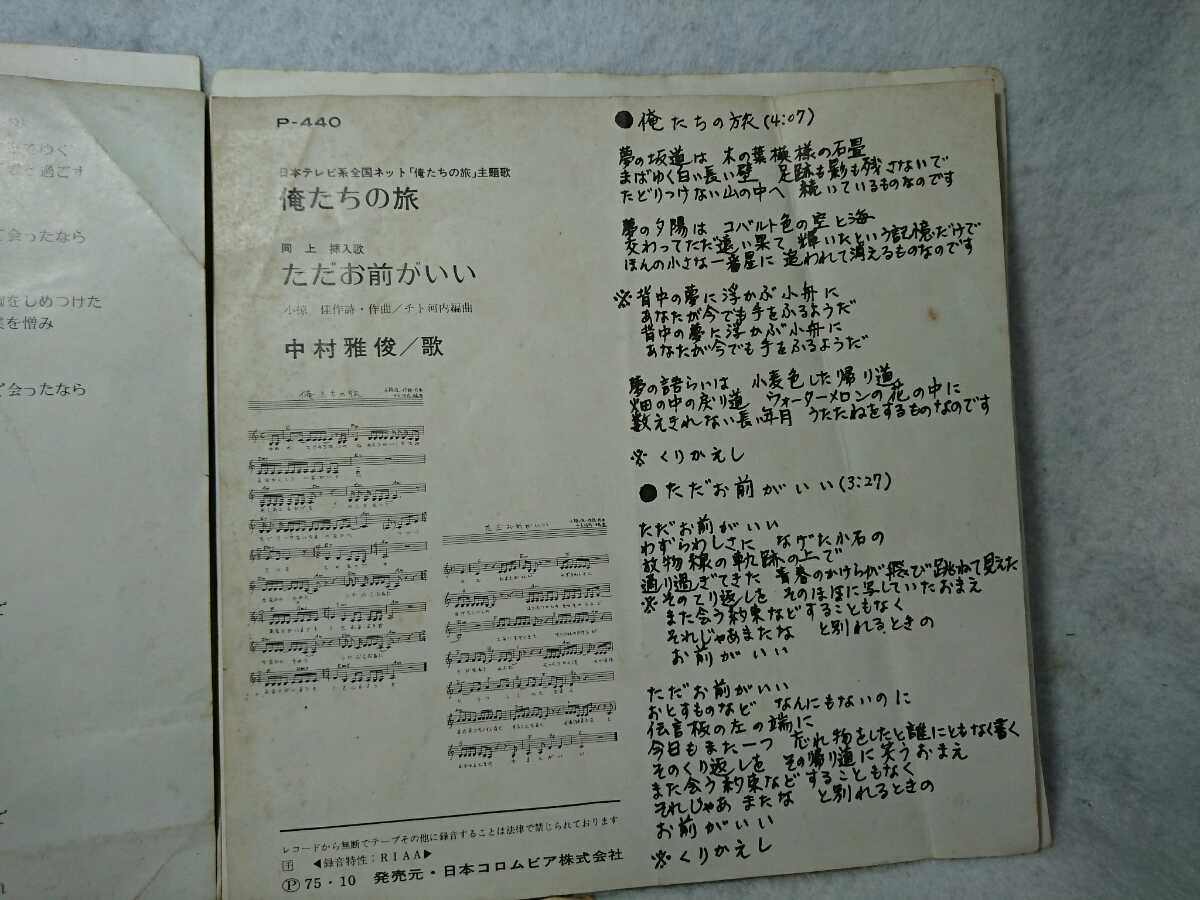 会ったなら
をしめつけた
を憎み
会ったなら
P-440
日本テレビ系全国ネット「俺たちの旅」主題歌
俺たちの旅
同上 挿入歌
ただお前がいい
小椋 佳作詩・作曲／チト河内編曲
中村雅俊／歌
俺たちの旅
ただお前がいい
レコードから無断でテープその他に録音することは法律で禁じられております
◀録音特性:RIAA▶
Ⓟ75・10 発売元・日本コロムビア株式会社
●俺たちの旅(4:07)
夢の坂道は 木の葉模様の石畳
まばゆく白い長い壁 足跡も影も残さないで
たどりつけない山の中へ 続いているものなのです
夢の夕陽は コバルト色の空と海
交わってただ遠い果て 輝いたという記憶だけで
ほんの小さな一番星に 追われて消えるものなのです
※背中の夢に浮かぶ小舟に
あなたが今でも手をふるようだ
背中の夢に浮かぶ小舟に
あなたが今でも手をふるようだ
夢の語らいは 小麦色した帰り道
畑の中の戻り道 ウォーターメロンの花の中に
数えきれない長い年月 うたたねをするものなのです
※くりかえし
●ただお前がいい(3:27)
ただお前がいい
わずらわしさに なげた小石の
放物線の軌跡の上で
通り過ぎてきた 青春のかけらが飛び跳ねて見えた
※そのてり返しを そのほほに写していたおまえ
また会う約束などすることもなく
それじゃあまたな と別れるときの
お前がいい
ただお前がいい
おとすものなど なんにもないのに
伝言板の左の端に
今日もまた一つ 忘れ物をしたと誰にともなく書く
そのくり返しを その帰り道に笑うおまえ
また会う約束などすることもなく
それじゃあ またな と別れるときの
お前がいい
※くりかえし